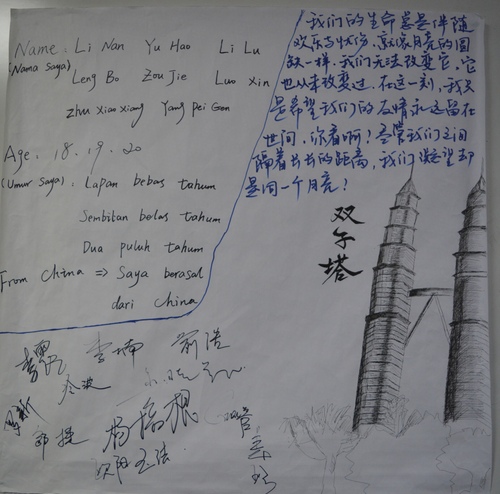 Name: Li Nan Yu Hao Li Lu
(Nama Saya) Leng Bo Zou Jie Luo Xin
zhu xiao xiang Yang Pei Gen
Age: 18. 19. 20
(Umur Saya): Lapan bebas tahum
Sembitan bolas tahum
Dua puluh tahum
From China => Saya berasal
dari China
我们的生命总是伴随
欢乐与忧伤,就像月亮的圆
缺一样,我们无法改变它,它
也从未改变过,在这一刻,我只
是希望我们的友情永远留在
世间,你看啊!尽管我们之间
隔着出出的距离,我们凝望却
是同一个月亮!
双子塔
李璐 李楠 俞浩
冷波
杨培根